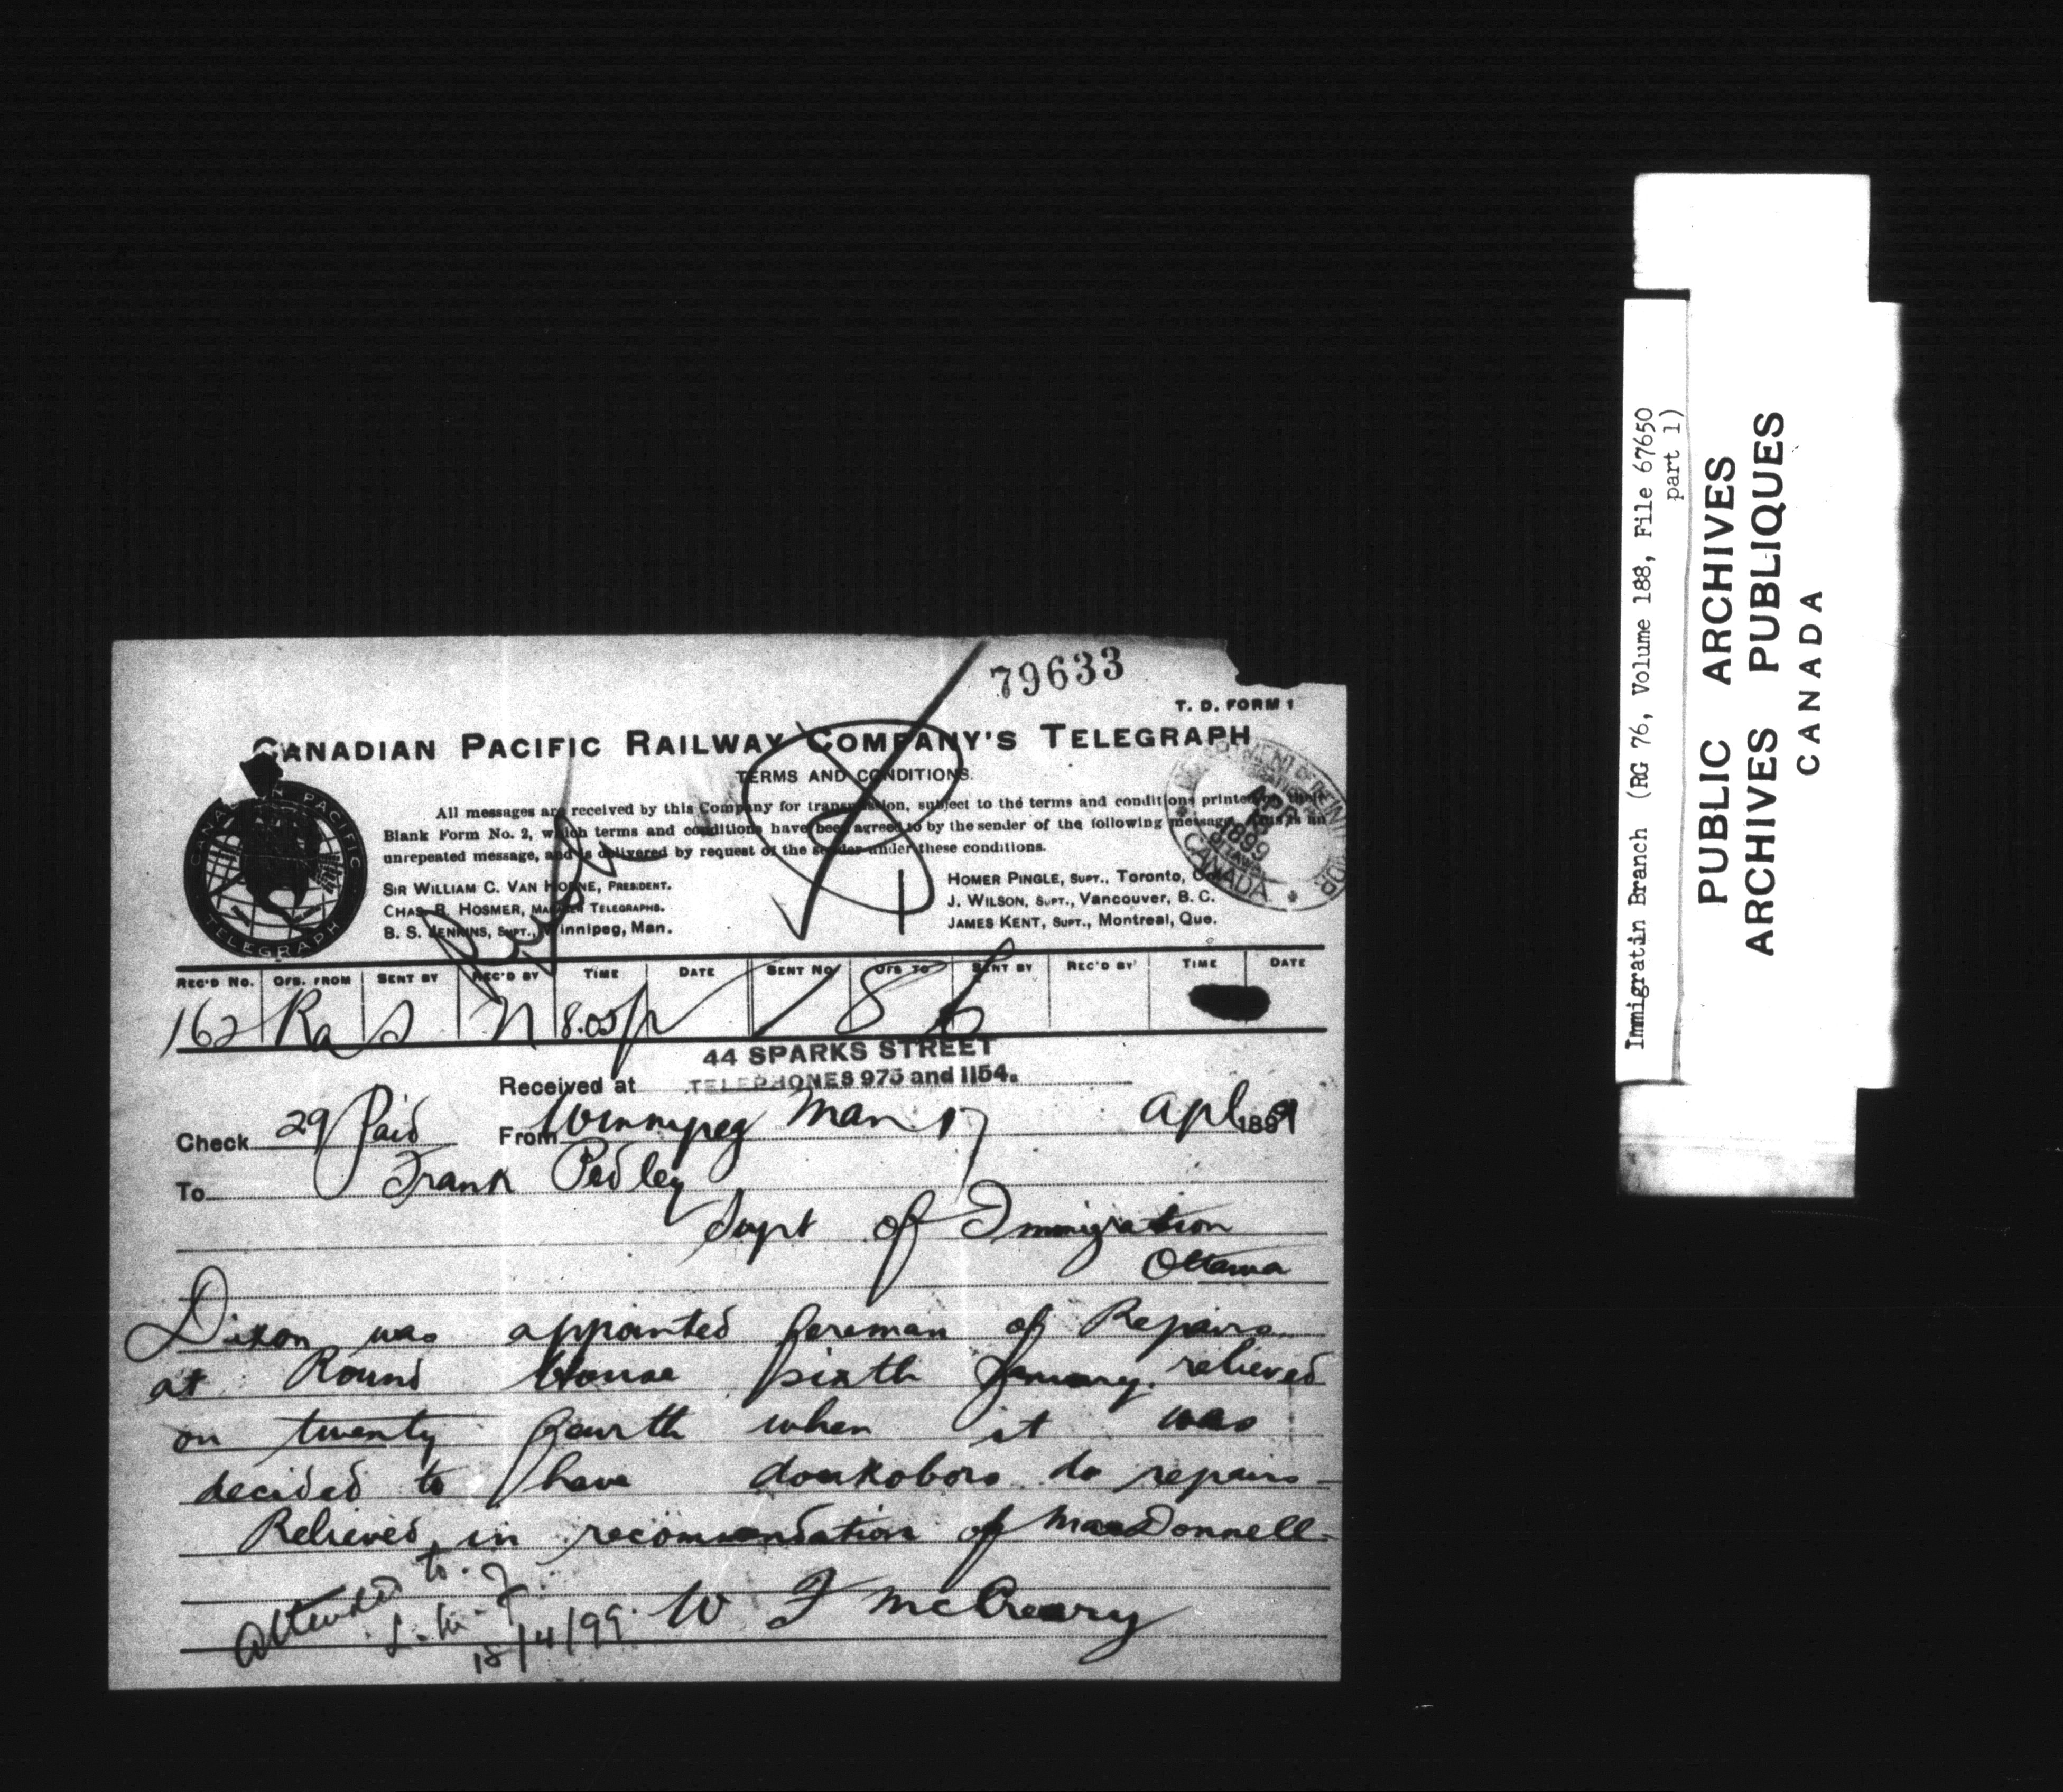 79633
T. D. FORM 1
CANADIAN PACIFIC RAILWAY COMPANY'S TELEGRAPH
TERMS AND CONDITIONS.
All messages are received by this Company for transmission, subject to the terms and conditions printed on their
Blank Form No. 2, which terms and conditions have been agreed to by the sender of the following message. This is an
unrepeated message, and is delivered by request of the sender under these conditions.
SIR WILLIAM C. VAN HORNE, PRESIDENT.
CHAS. R. HOSMER, MANAGER TELEGRAPHS.
B. S. JENKINS, SUPT., Winnipeg, Man.
HOMER PINGLE, SUPT., Toronto, Ont.
J. WILSON, SUPT., Vancouver, B. C.
JAMES KENT, SUPT., Montreal, Que.
CANADIAN PACIFIC TELEGRAPH
DEPARTMENT OF THE INTERIOR
APR 1899
OTTAWA
CANADA
REC'D NO. OFS. FROM SENT BY REC'D BY TIME DATE SENT NO. OFS TO SENT BY REC'D BY TIME DATE
162 Ra S N 8.05 p
44 SPARKS STREET
Received at TELEPHONES 975 and 1154.
Check 29 Paid From Winnipeg Man 17 Apl 1899
To Frank Pedley
Supt of Immigration
Ottawa
Dixon was appointed foreman of Repairs
at Round House sixth January. relieved
on twenty fourth when it was
decided to have doukobors do repairs -
Relieved in recomendation of MacDonnell -
W F McCreary
Attended to.
18/4/99
Immigratin Branch (RG 76, Volume 188, File 67650
part 1)
PUBLIC ARCHIVES
ARCHIVES PUBLIQUES
CANADA